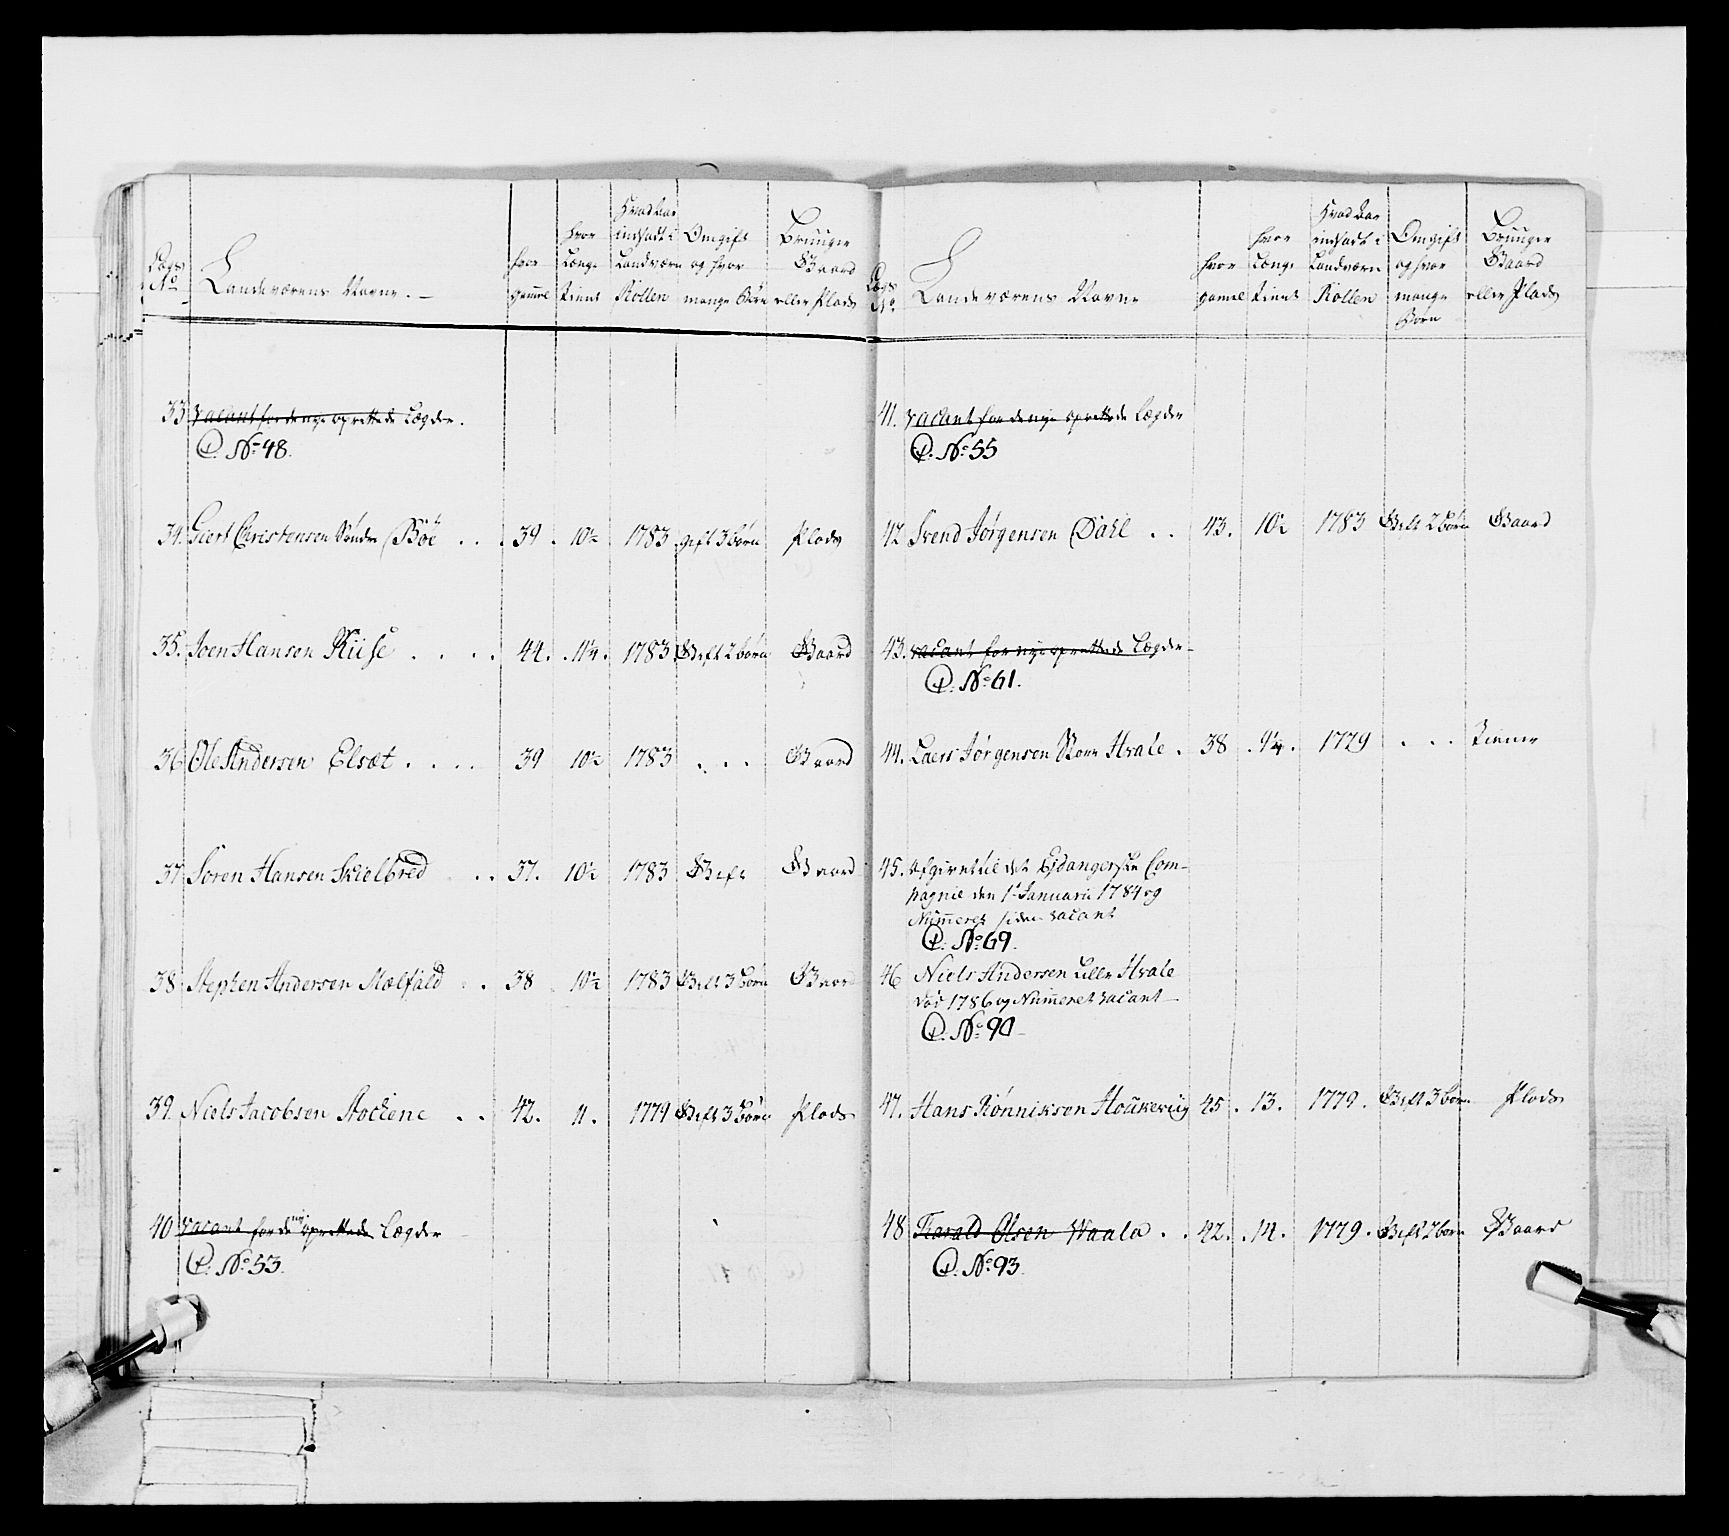 Lægs No
Landeværens Navne.
hvor gamel
hvor Længe tient
Hvad Aar indsadt i Landværn Rollen
Om gift og hvor mange Børn
Bruuger Gaard eller Plads
33 vacant for de nye oprettede Lægder.
C. No 48.
34. Giert Christensen Søndre Bøe . . . 39 . 10½ 1783 gift 3 børn Plads
35. Joen Hansen Riise . . . . 44. 11¼. 1783 Gift 2 børn Gaard
36 Ole Andersen Elsæt . . . . 39 10½ 1783 . . . Gaard
37 Søren Hansen Skielbred . . 37. 10½ 1783 Gift Gaard
38 Stephen Andersen Mælfald . . 38 10½ 1783 Gift 3 børn Gaard
39. Niels Jacobsen Stockene . . 42. 11. 1779 Gift 3 Børn Plads
40 vacant for de nye oprettede Lægder
C. No 53.
Lægs No
Landeværens Navne
hvor gamel
hvor Længe tient
Hvad Aar indsadt i Landværn Rollen
Om gift og hvor mange Børn
Bruuger Gaard eller Plads
41. vacant for de nye oprettede Lægder
C. No 55
42 Svend Jørgensen Dahl . . 43. 10½ 1783 Gift 2 børn Gaard
43. vacant for nye oprettede Lægder
C. No 61.
44. Laers Jørgensen Store Hvale . 38 . 9¼. 1779 . . . Tiener
45. Afgivet til det Eidangerske Com-
pagnie den 1t Januarii 1784 og
Numeret siden vacant
C. No 69.
46 Niels Andersen Lille Hvale
død 1786 og Numeret vacant
C. No 90
47. Hans Rønniksen Houkeriig 45 . 13. 1779. Gift 3 børn Plads
48 Harald Olsen Waala . . 42. . 14. 1779. Gift 2 børn Gaard
C. No 93.